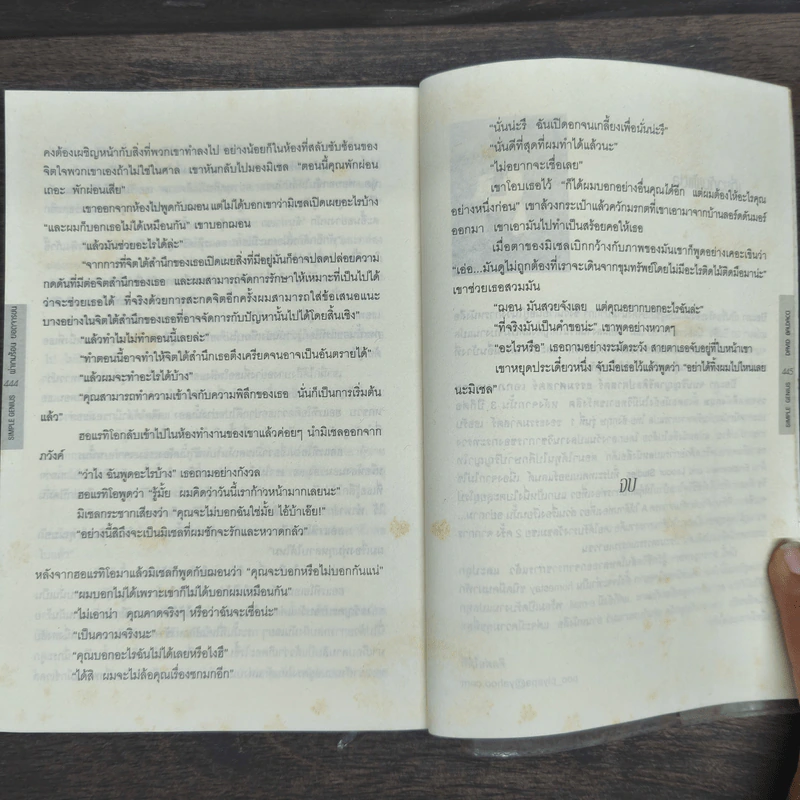 คงต้องเผชิญหน้ากับสิ่งที่พวกเขาทำลงไป อย่างน้อยก็ในห้องที่สลับซับซ้อนของ
จิตใจพวกเขาเองถ้าไม่ใช่ในศาล เขาหันกลับไปมองมิเชล "ตอนนี้คุณพักผ่อน
เถอะ พักผ่อนเสีย"
เขาออกจากห้องไปพูดกับฌอน แต่ไม่ได้บอกเขาว่ามิเชลเปิดเผยอะไรบ้าง
"และผมก็บอกเธอไม่ได้เหมือนกัน" เขาบอกฌอน
"แล้วมันช่วยอะไรได้ล่ะ"
"จากการที่จิตใต้สำนึกของเธอเปิดเผยสิ่งที่มีอยู่มันก็อาจปลดปล่อยความ
กดดันที่มีต่อจิตสำนึกของเธอ และผมสามารถจัดการรักษาให้เหมาะที่เป็นไปได้
ว่าจะช่วยเธอได้ ที่จริงด้วยการสะกดจิตอีกครั้งผมสามารถใส่ข้อเสนอแนะ
บางอย่างในจิตใต้สำนึกของเธอที่อาจจัดการกับปัญหานั้นไปได้โดยสิ้นเชิง"
"แล้วทำไมไม่ทำตอนนี้เลยล่ะ"
"ทำตอนนี้อาจทำให้จิตใต้สำนึกเธอตึงเครียดจนอาจเป็นอันตรายได้"
"แล้วผมจะทำอะไรได้บ้าง"
"คุณสามารถทำความเข้าใจกับความพิลึกของเธอ นั่นก็เป็นการเริ่มต้น
แล้ว"
ฮอแรทิโอกลับเข้าไปในห้องทำงานของเขาแล้วค่อยๆ นำมิเชลออกจาก
ภวังค์
"ว่าไง ฉันพูดอะไรบ้าง" เธอถามอย่างกังวล
ฮอแรทิโอพูดว่า "รู้มั้ย ผมคิดว่าวันนี้เราก้าวหน้ามากเลยนะ"
มิเชลกระชากเสียงว่า "คุณจะไม่บอกฉันใช่มั้ย ไอ้บ้าเอ๊ย!"
"อย่างนี้สิถึงจะเป็นมิเชลที่ผมชักจะรักและหวาดกลัว"
หลังจากฮอแรทิโอมาแล้วมิเชลก็พูดกับฌอนว่า "คุณจะบอกหรือไม่บอกกันแน่"
"ผมบอกไม่ได้เพราะเขาก็ไม่ได้บอกผมเหมือนกัน"
"ไม่เอาน่า คุณคาดจริงๆ หรือว่าฉันจะเชื่อน่ะ"
"เป็นความจริงนะ"
"คุณบอกอะไรฉันไม่ได้เลยหรือไงฮึ"
"ได้สิ ผมจะไม่ล้อคุณเรื่องชกมกอีก"
444
SIMPLE GENIUS
"นั่นน่ะรึ ฉันเปิดอกจนเกลี้ยงเพื่อมั่นน่ะรึ"
"นั่นดีที่สุดที่ผมทำได้แล้วนะ"
"ไม่อยากจะเชื่อเลย"
เขาโอบเธอไว้ "ก็ได้ผมบอกอย่างอื่นคุณได้อีก แต่ผมต้องให้อะไรคุณ
อย่างหนึ่งก่อน" เขาล้วงกระเป๋าแล้วควักมรกตที่เขาเอามาจากบ้านลอร์ดดันมอร์
ออกมา เขาเอามันไปทำเป็นสร้อยคอให้เธอ
เมื่อตาของมิเชลเบิกกว้างกับภาพของมันเขาก็พูดอย่างเคอะเขินว่า
"เอ่อ...มันดูไม่ถูกต้องที่เราจะเดินจากขุมทรัพย์โดยไม่มีอะไรติดไม้ติดมือมาน่ะ"
เขาช่วยเธอสวมมัน
"ฌอน มันสวยจังเลย แต่คุณอยากบอกอะไรฉันล่ะ"
"ที่จริงมันเป็นคำขอน่ะ" เขาพูดอย่างหวาดๆ
"อะไรหรือ" เธอถามอย่างระมัดระวัง สายตาเธอจับอยู่ที่ใบหน้าเขา
เขาหยุดประเดี๋ยวหนึ่ง จับมือเธอไว้แล้วพูดว่า "อย่าได้ทิ้งผมไปไหนเลย
นะมิเชล"
จบ
DAVID BALDACCI
445
SIMPLE GENIUS